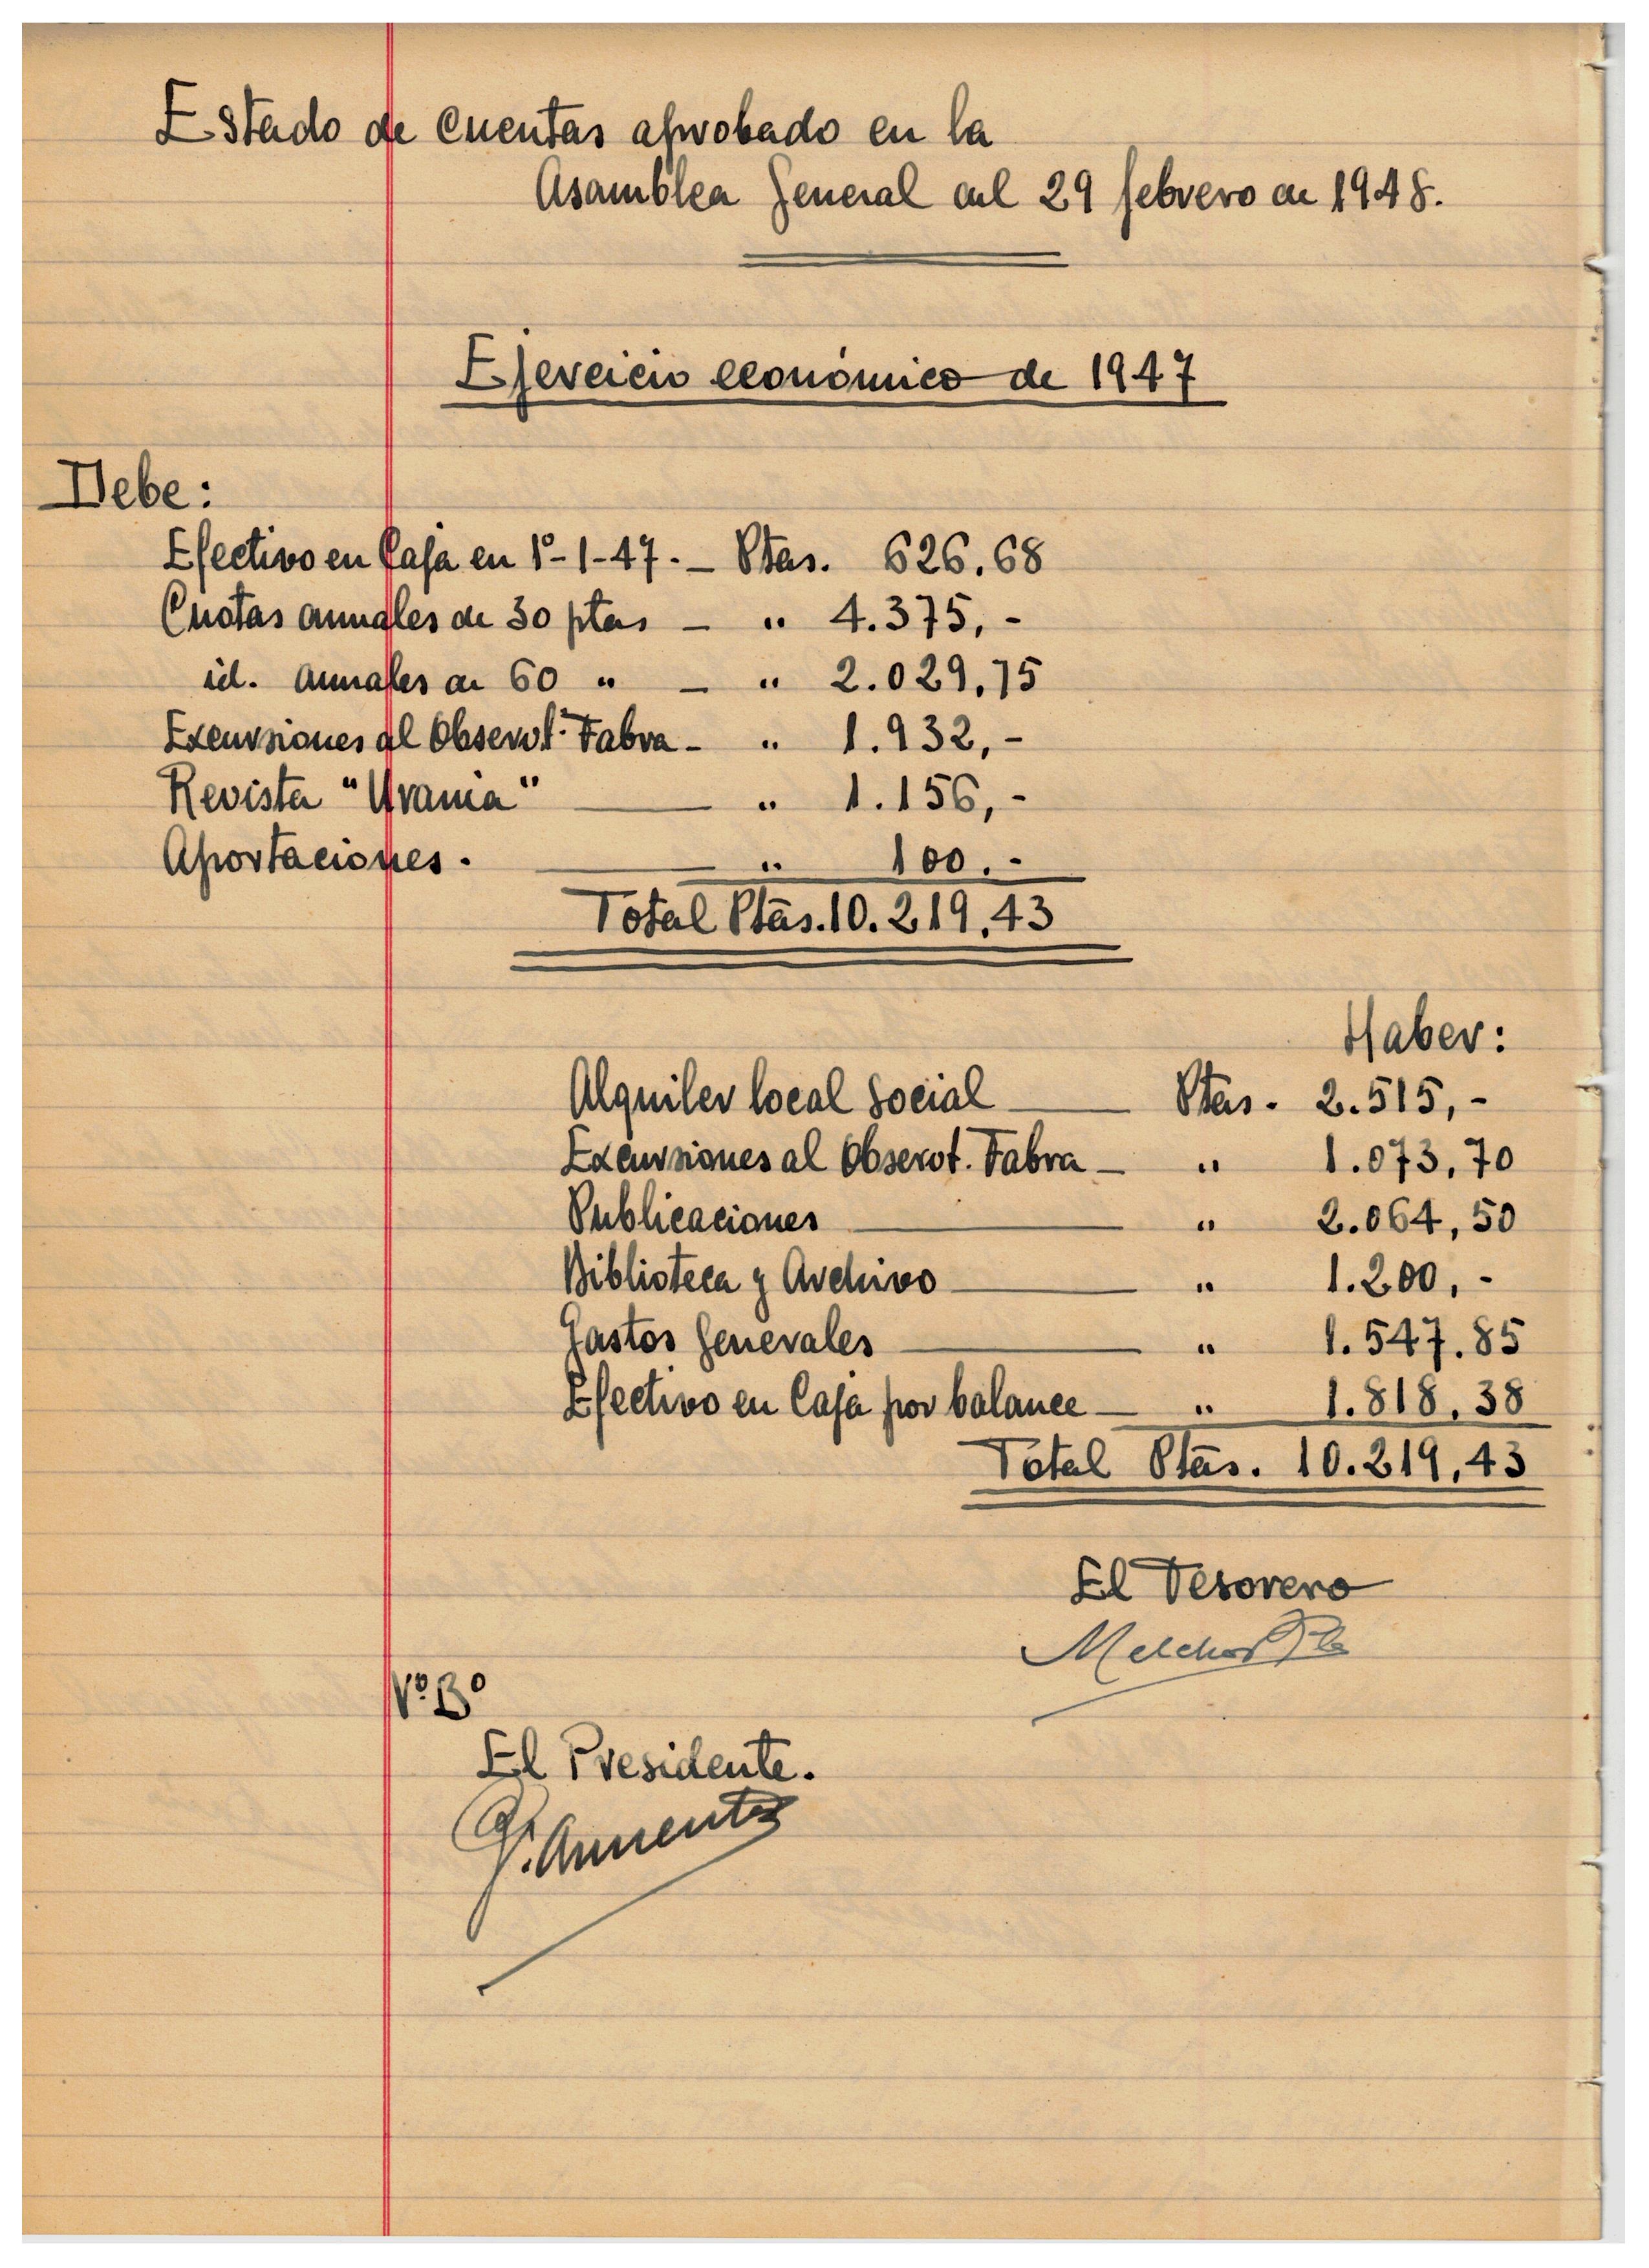 Estado de cuentas aprobado en la
Asamblea General del 29 febrero de 1948.
Ejercicio económico de 1947
Debe:
Efectivo en Caja en 1º-1-47.- Ptas. 626.68
Cuotas anuales de 30 ptas - " 4.375,-
id. anuales de 60 " - " 2.029,75
Excursiones al Observt. Fabra - " 1.932,-
Revista "Urania" — " 1.156,-
Aportaciones. — " 100.-
Total Ptas. 10.219,43
Haber:
Alquiler local social — Ptas. 2.515,-
Excursiones al Observt. Fabra - " 1.073,70
Publicaciones — " 2.064,50
Biblioteca y Archivo — " 1.200,-
Gastos generales — " 1.547.85
Efectivo en Caja por balance - " 1.818.38
Total Ptas. 10.219,43
El Tesorero
Melchor Pla
Vº Bº
El Presidente.
Armenter